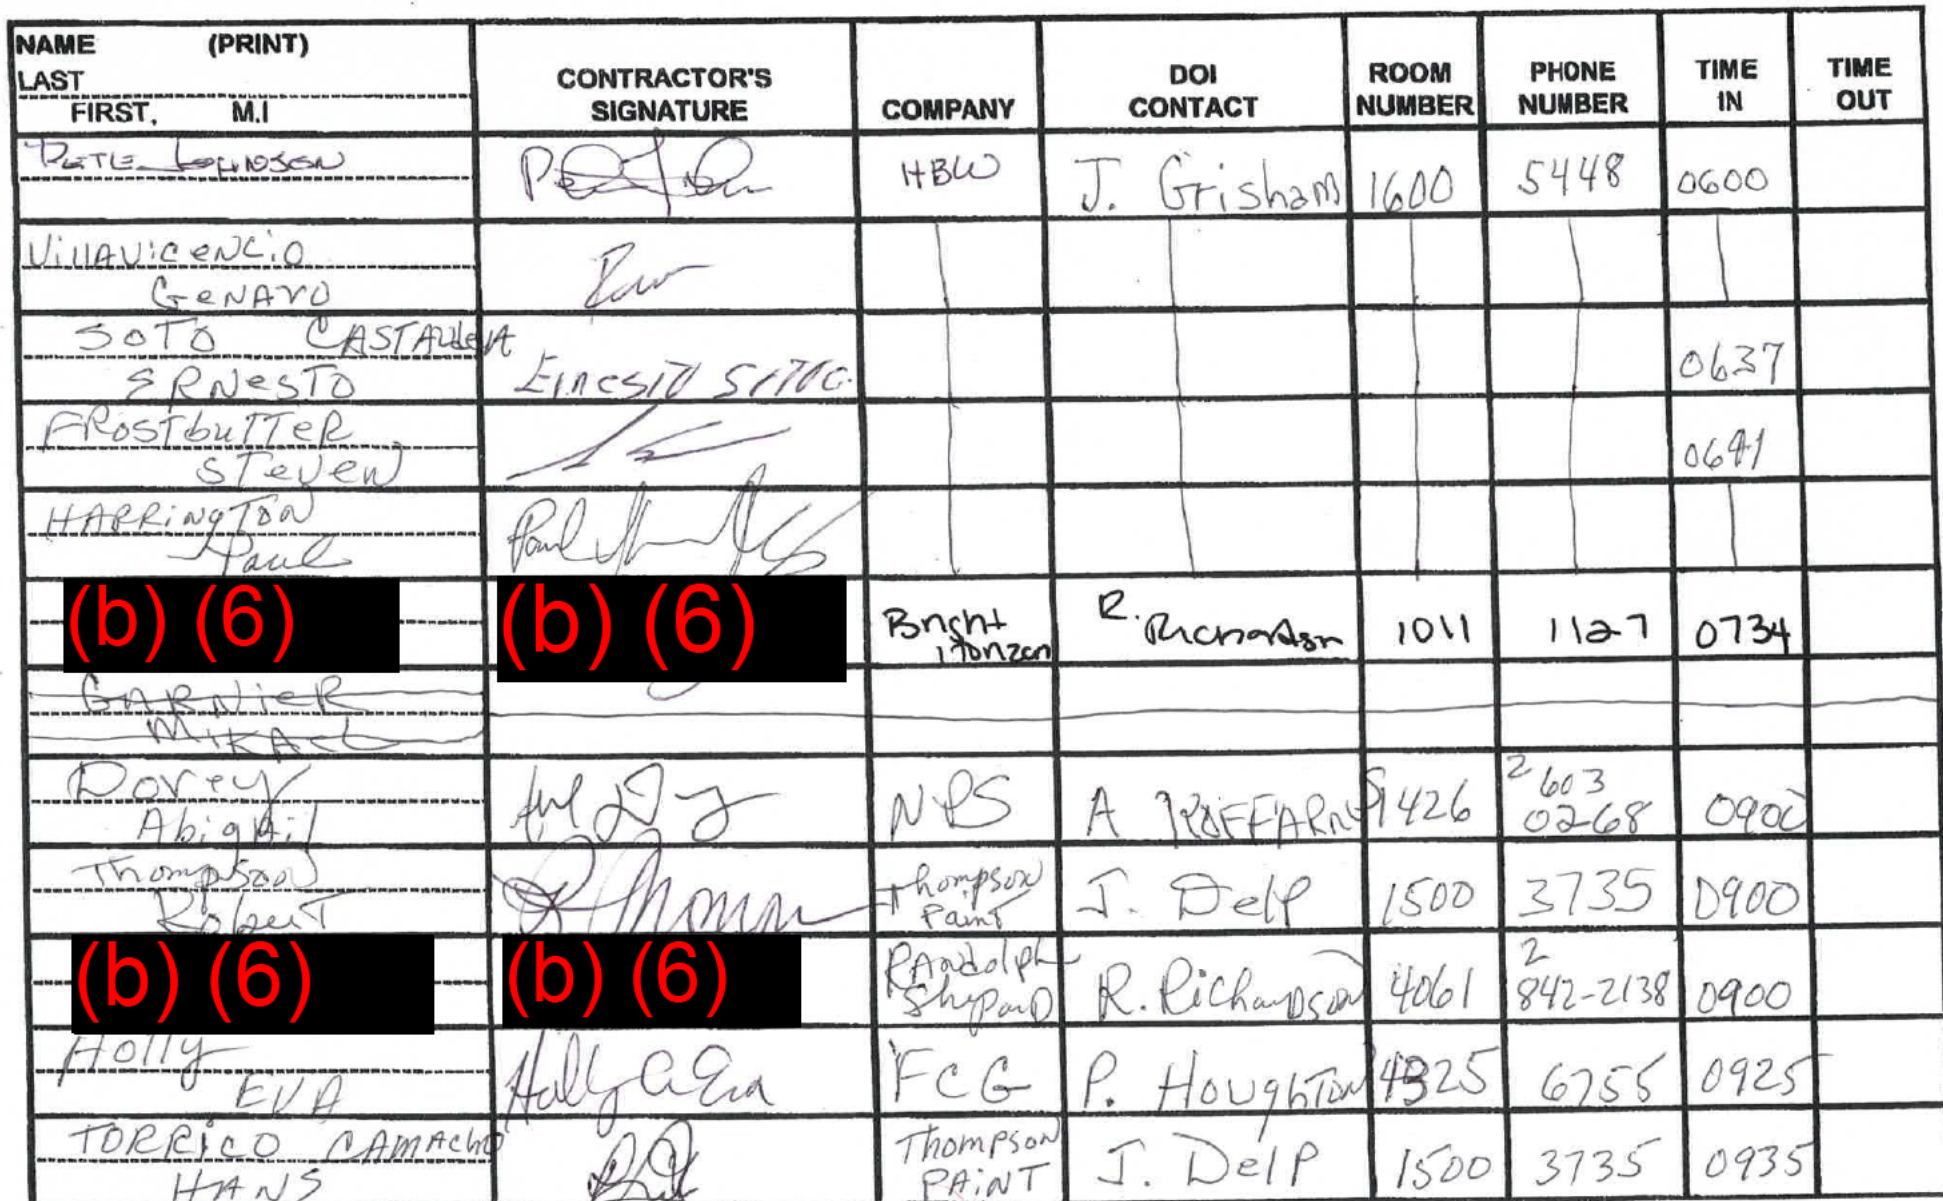 NAME (PRINT)
LAST
FIRST, M.I
CONTRACTOR'S
SIGNATURE
COMPANY
DOI
CONTACT
ROOM
NUMBER
PHONE
NUMBER
TIME
IN
TIME
OUT
PETE JOHNSON
HBW
J. Grisham
1600
5448
0600
VillAVicENCiO
GeNARO
SOTO CASTAÑEDA
ERNesTO
0637
FROSTbuTTeR
STeVeN
0641
HARRiNgTON
Paul
Paul
(b) (6)
(b) (6)
Bright
Horizon
R.
Richardson
1011
1127
0734
GARNieR
MiKAeL
Dorey
AbigAil
NPS
A
1426
2 603
0268
0900
Thompson
RobeRT
Thompson
Paint
J. Delp
1500
3735
0900
(b) (6)
(b) (6)
RANdolph
ShepaRD
R. Richardson
4061
2
842-2138
0900
Holly
EVA
Holly Eva
FCG
P. HoughTon
4325
6755
0925
TORRiCO CAMACHO
HANS
Thompson
PAiNT
J. Delp
1500
3735
0935